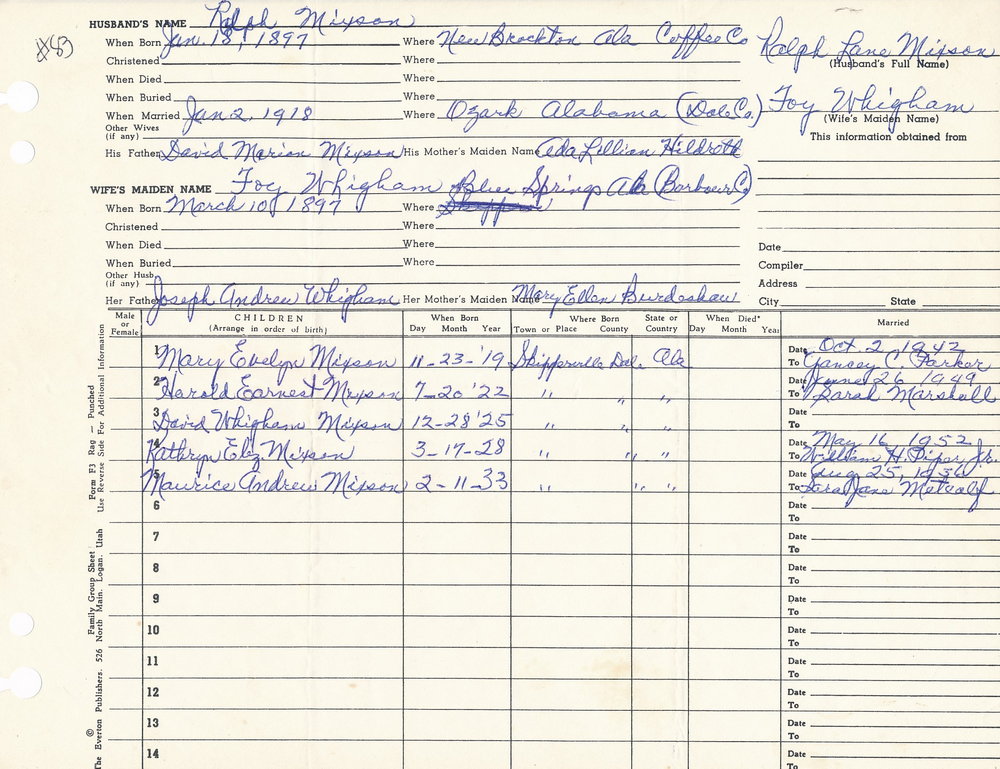 #83
HUSBAND'S NAME Ralph Mixson
When Born Jan. 18, 1897 Where New Brockton Ala Coffee Co
Ralph Lane Mixson
(Husband's Full Name)
Christened Where
When Died Where
When Buried Where
When Married Jan 2, 1918 Where Ozark Alabama (Dale Co.)
Foy Whigham
(Wife's Maiden Name)
Other Wives
(if any)
This information obtained from
His Father David Marion Mixson His Mother's Maiden Name Ada Lillian Hildreth
WIFE'S MAIDEN NAME Foy Whigham Blue Springs Ala (Barbour Co)
When Born March 10, 1897 Where
Christened Where
When Died Where
When Buried Where
Other Husb.
(if any)
Her Father Joseph Andrew Whigham Her Mother's Maiden Name Mary Ellen Burdeshaw
Date
Compiler
Address
City State
Male or Female
CHILDREN
(Arrange in order of birth)
When Born
Day Month Year
Where Born
Town or Place County
State or Country
When Died*
Day Month Year
Married
1 Mary Evelyn Mixson 11-23-'19 Skipperville Dale Ala Date Oct. 2, 1942
To Yancey C. Parker
2 Harold Earnest Mixson 7-20'22 " " " Date June 26, 1949
To Sarah Marshall
3 David Whigham Mixson 12-28'25 " " " Date
To
4 Kathryn Eliz. Mixson 3-17-28 " " " Date May 16, 1952
To William H. Piper, Jr.
5 Maurice Andrew Mixson 2-11-33 " " " Date Aug 25, 1956
To Sara Jane Metcalf
6 Date
To
7 Date
To
8 Date
To
9 Date
To
10 Date
To
11 Date
To
12 Date
To
13 Date
To
14 Date
To
Form F3 Rag — Punched
Use Reverse Side For Additional Information
Family Group Sheet
© The Everton Publishers, 526 North Main, Logan, Utah